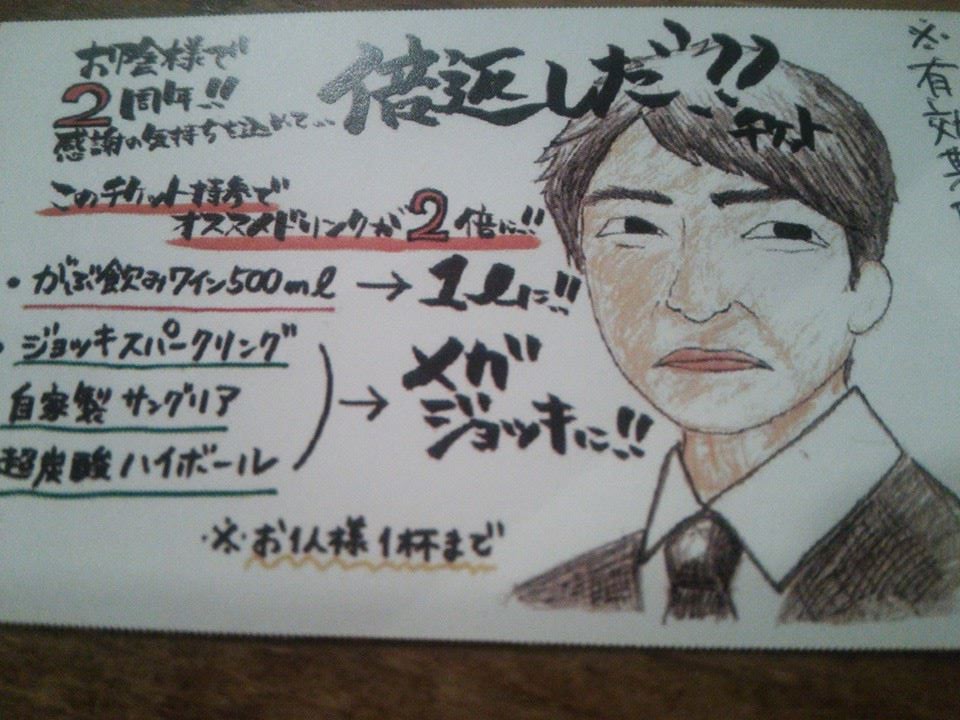 お陰様で
2周年!!
感謝の気持ちを込めて...
倍返しだ!!
チケット
このチケット持参で
オススメドリンクが2倍に!!
・がぶ飲みワイン500ml → 1lに!!
・ジョッキスパークリング
自家製サングリア
超炭酸ハイボール
→ メガ
ジョッキに!!
※お1人様1杯まで
※有効期